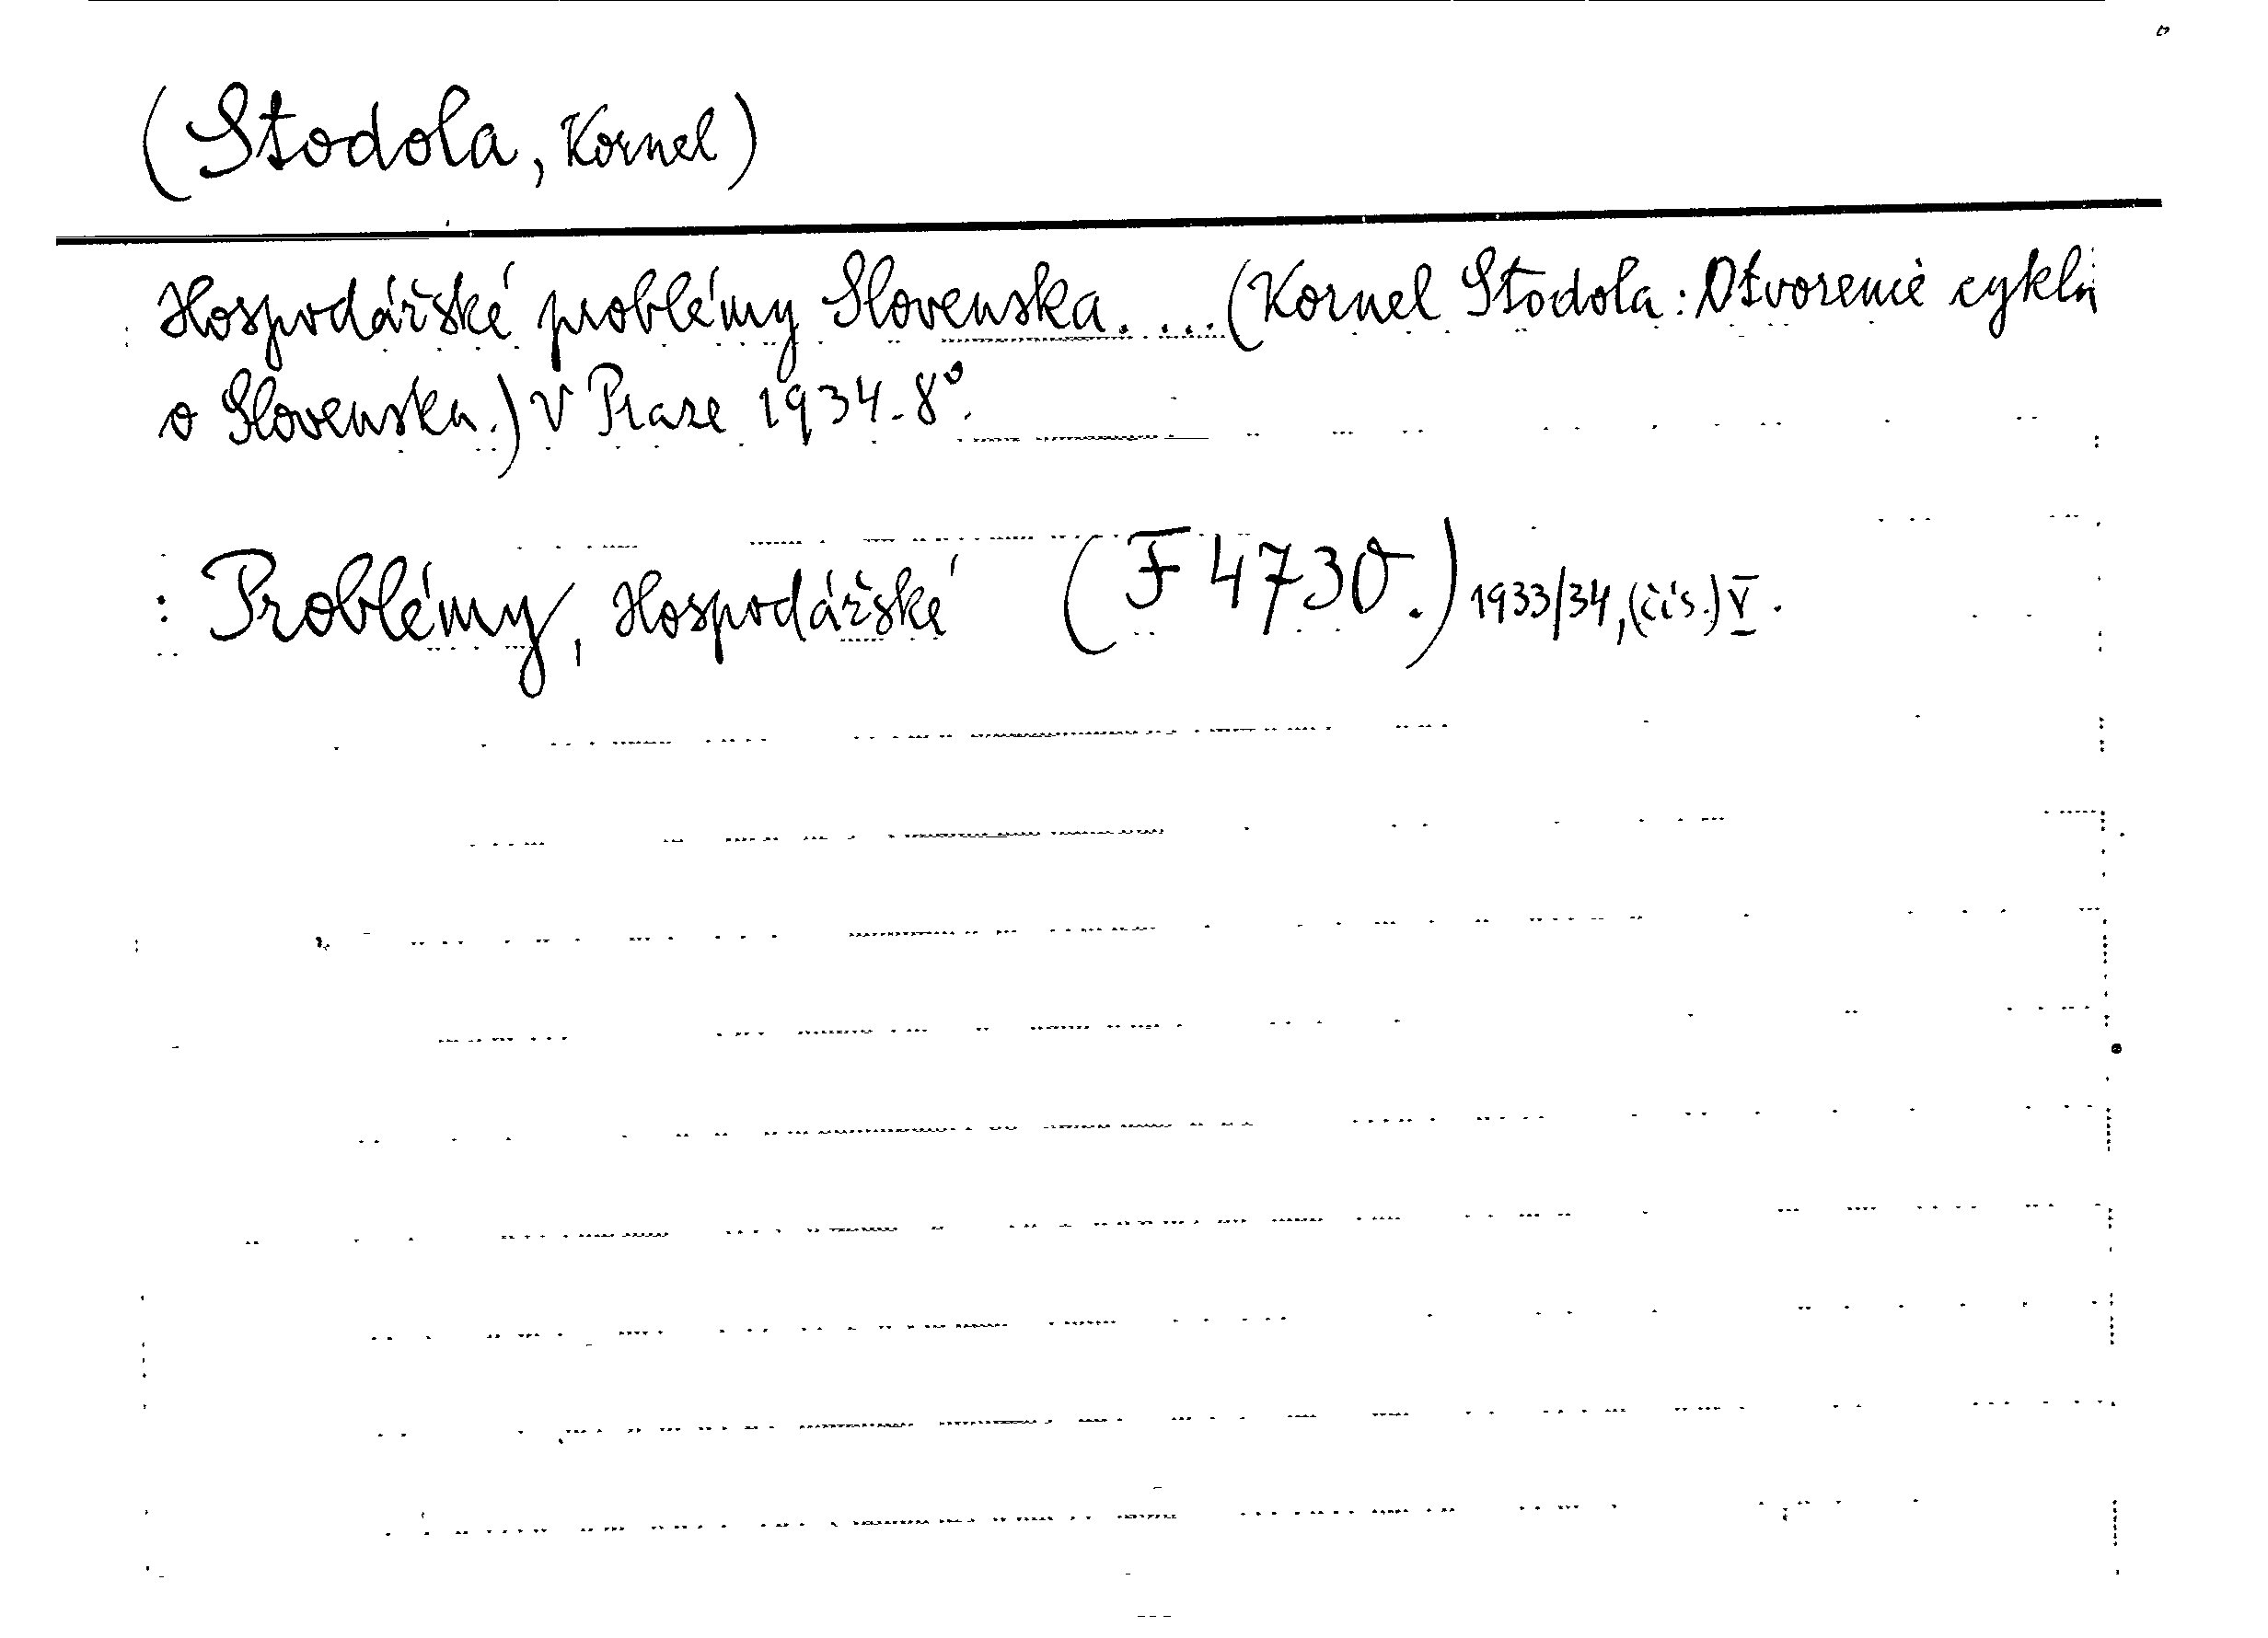 (Stodola, Kornel)
Hospodářské problémy Slovenska. ...(Kornel Stodola: Otvorenie cyklu
o Slovensku.) V Praze 1934. 8°.
: Problémy, Hospodářské (F 4730.) 1933/34, (čís.) V.